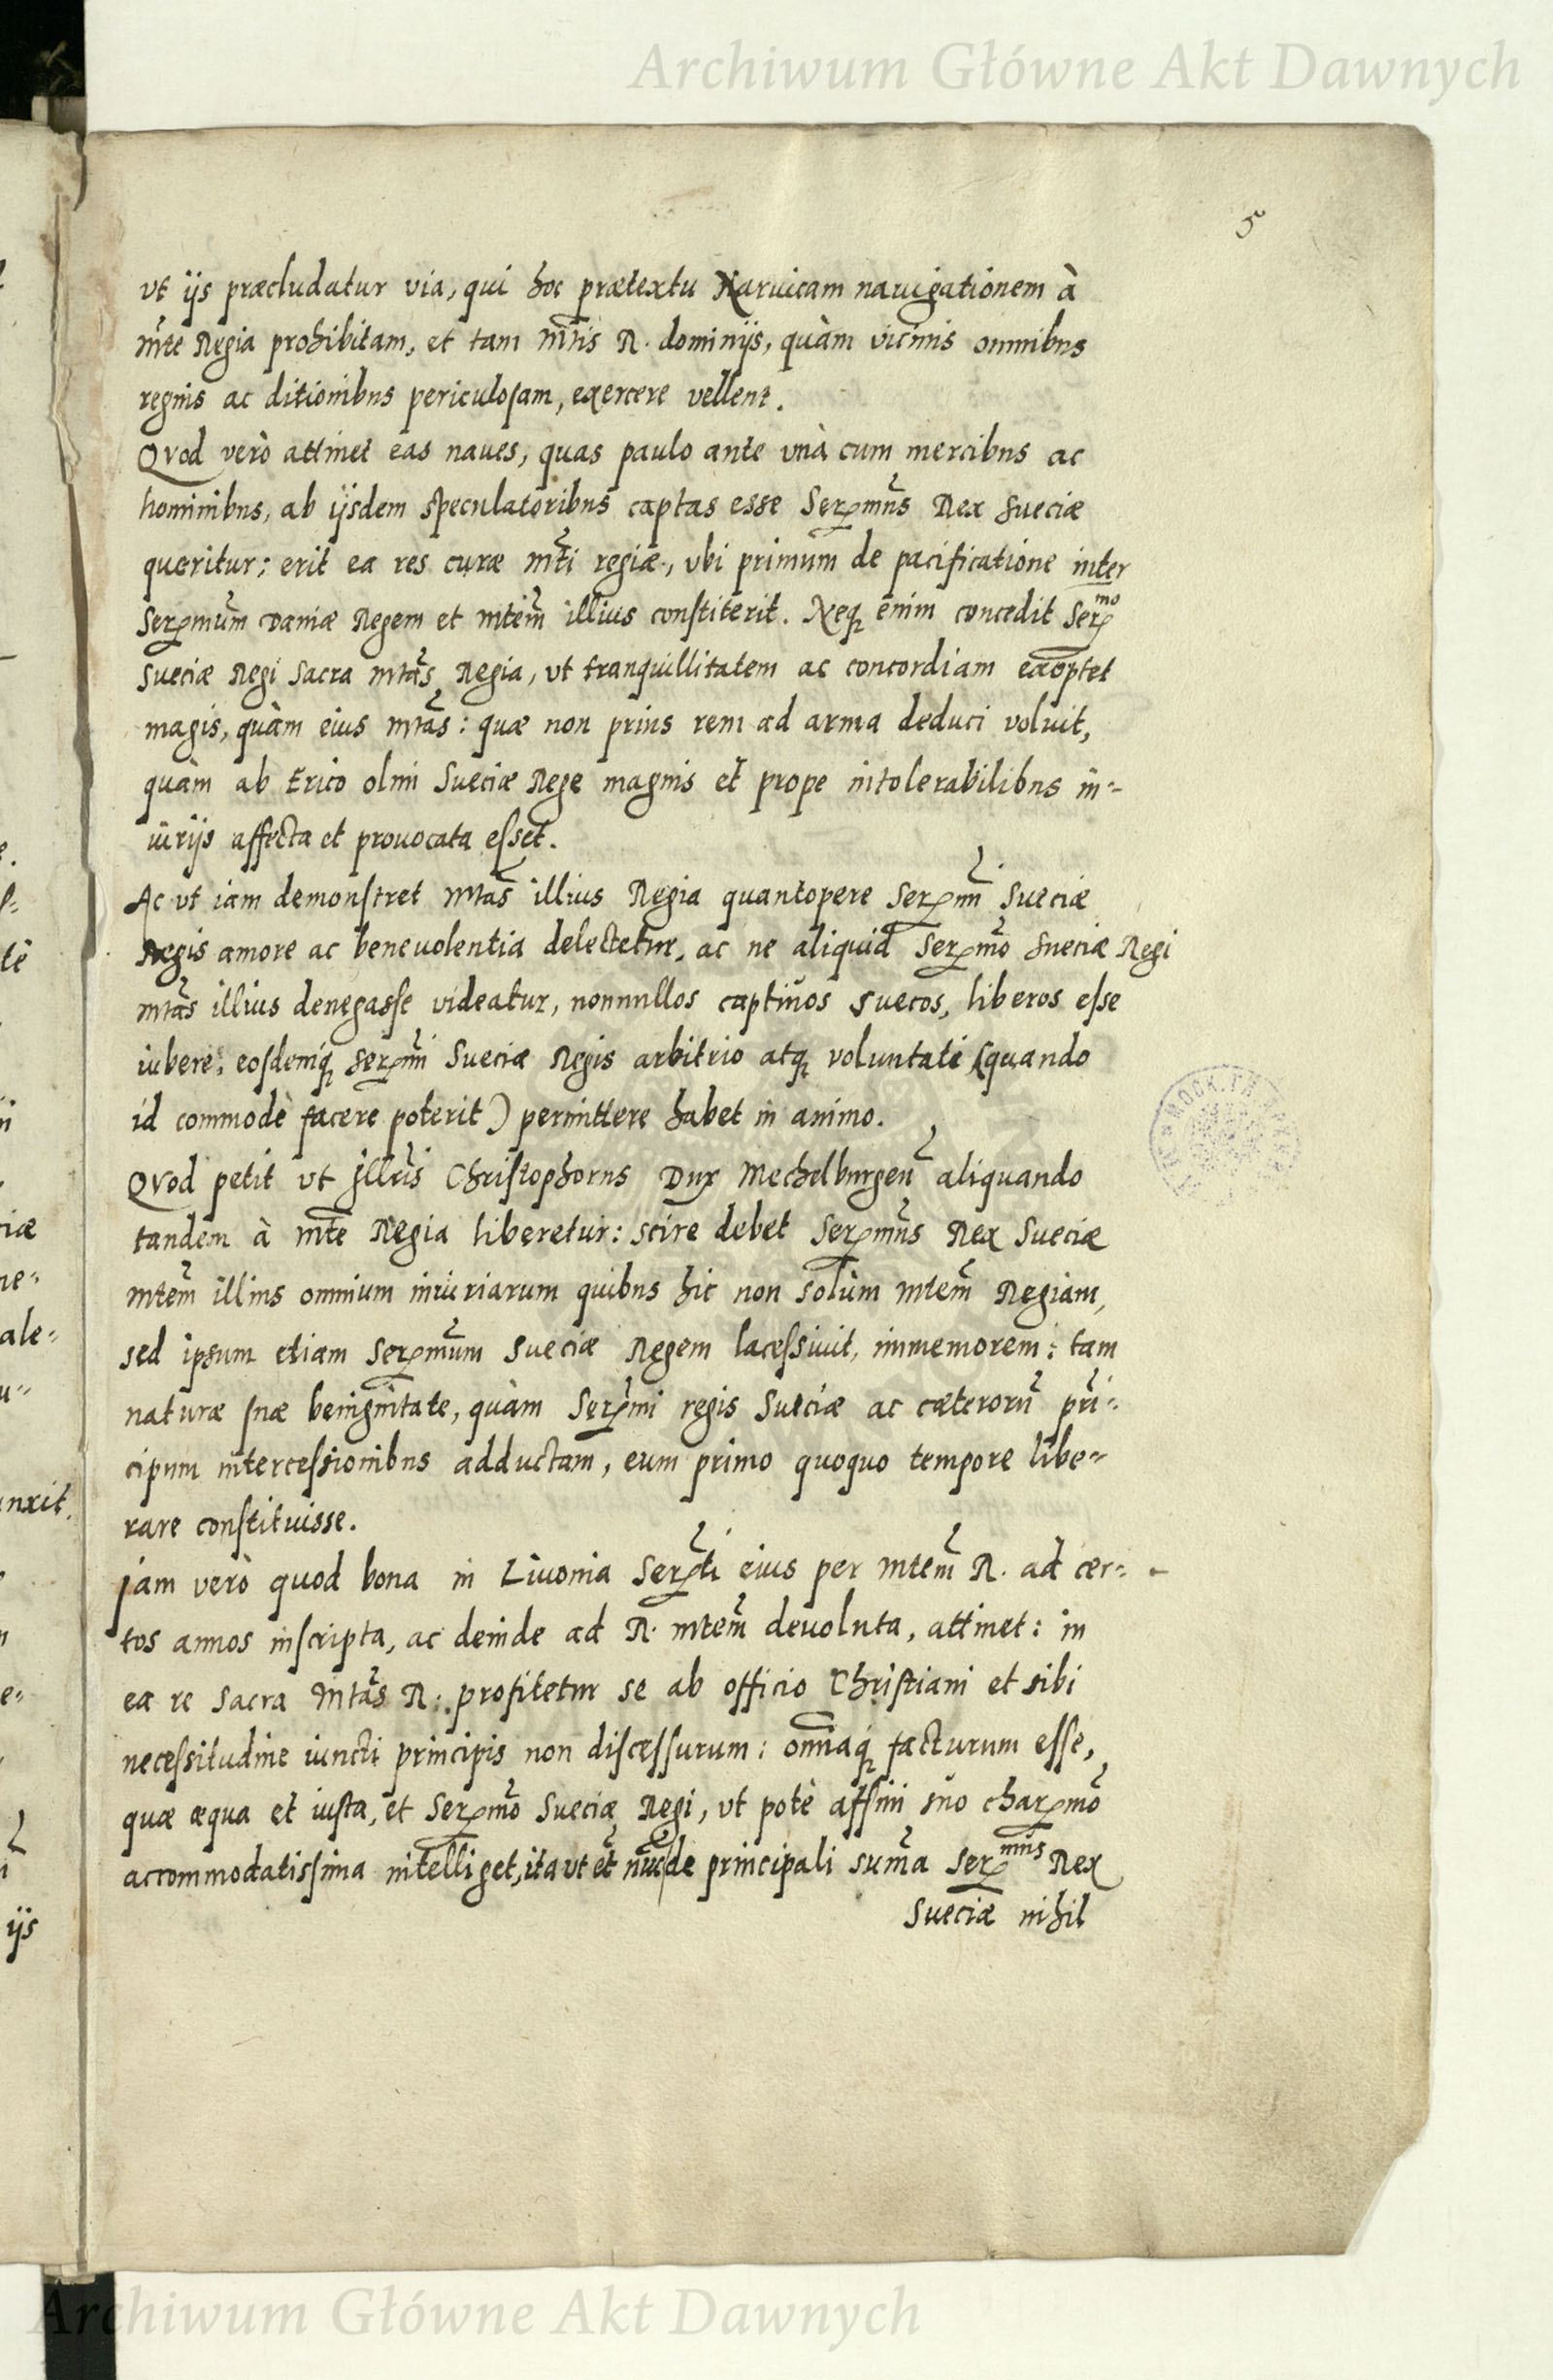 Archiwum Główne Akt Dawnych
5
vt ijs præcludatur via, qui hoc prætextu Naruicam nauigationem à
mtẽ Regia prohibitam, et tam mtĩs R. dominijs, quàm vicinis omnibus
regnis ac ditionibus periculosam, exercere vellent.
Qvod verò attinet eas naues, quas paulo ante vnà cum mercibus ac
hominibus, ab ijsdem speculatoribus captas esse Serẽmus Rex Sueciæ
queritur; erit ea res curæ mtĩ regiæ, vbi primum de pacificatione inter
Serẽmum Daniæ Regem et mtẽm illius constiterit. Neq; enim concedit Serẽmo
Sueciæ Regi Sacra mtãs Regia, vt tranquillitatem ac concordiam exoptet
magis, quàm eius mtãs: quæ non prius rem ad arma deduci voluit,
quàm ab Erico olim Sueciæ Rege magnis et prope intolerabilibus in-
iurijs affecta et prouocata esset.
Ac vt iam demonstret mtãs illius Regia quantopere Serẽmi Sueciæ
Regis amore ac beneuolentia delectetur, ac ne aliquid Serẽmo Sueciæ Regi
mtãs illius denegasse videatur, nonnullos captiuos Suecos, liberos esse
iubere, eosdemq; Serẽmi Sueciæ Regis arbitrio atq; voluntati (quando
id commodè facere poterit) permittere habet in animo.
Qvod petit vt Illrĩs Christophorus Dux Mechelburgeñ aliquando
tandem à mtẽ Regia liberetur: scire debet Serẽmus Rex Sueciæ
mtẽm illius omnium iniuriarum quibus hic non solùm mtẽm Regiam,
sed ipsum etiam Serẽmum Sueciæ Regem lacessiuit, immemorem: tam
naturæ suæ benignitate, quàm Serẽmi regis Sueciæ ac cæterorũ prĩ-
cipum intercessionibus adductam, eum primo quoquo tempore libe-
rare constituisse.
Jam verò quod bona in Liuonia Serẽti eius per mtẽm R. ad cer-
tos annos inscripta, ac deinde ad R. mtẽm deuoluta, attinet: in
ea re Sacra mtãs R. profitetur se ab officio Christiani et sibi
necessitudine iuncti principis non discessurum: omniaq; facturum esse,
quæ æqua et iusta, et Serẽmo Sueciæ Regi, vt potè affini suo charẽmo
accommodatissima intelliget, ita vt et nũc de principali summa Serẽmus Rex
Sueciæ nihil
Archiwum Główne Akt Dawnych